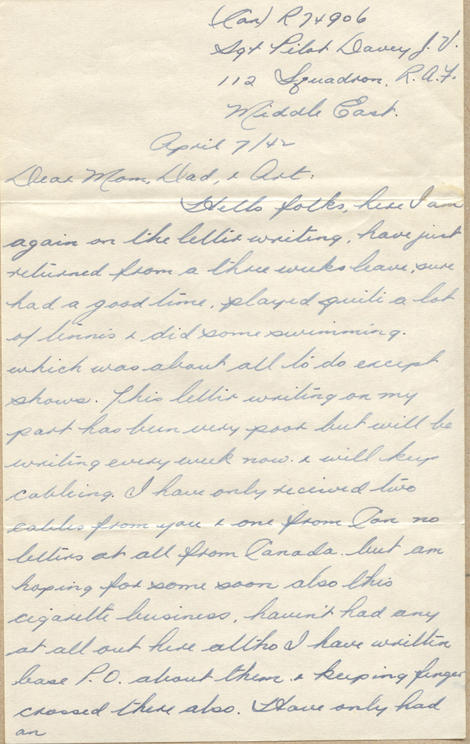 (Can) R74906
Sgt Pilot Davey J. V.
112 Squadron, R.A.F.
Middle East.
April 7/42
Dear Mom, Dad, & Art:
Hello folks, here I am
again on the letter writing, have just
returned from a three weeks leave, sure
had a good time, played quite a lot
of tennis & did some swimming.
which was about all to do except
shows. This letter writing on my
part has been very poor but will be
writing every week now. & will keep
cabling. I have only received two
cables from you & one from Can no
letters at all from Canada. but am
hoping for some soon also this
cigarette business, haven't had any
at all out here altho I have written
base P.O. about them. & keeping finger
crossed there also. Have only had
an